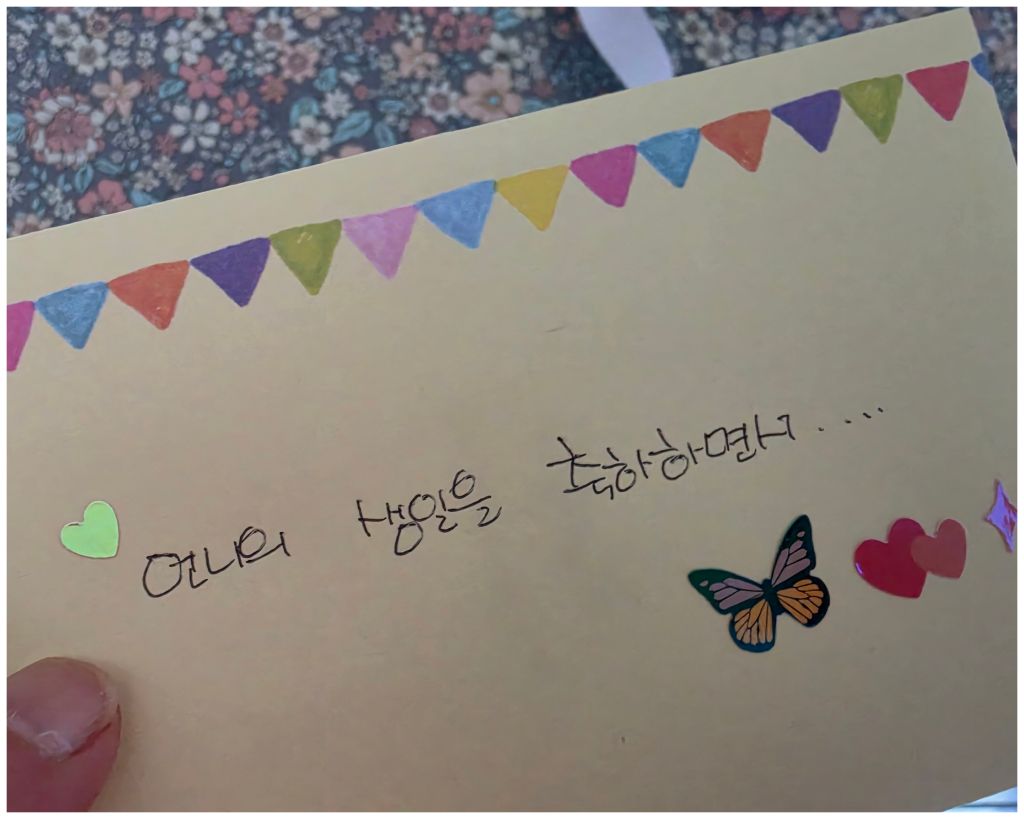 언니의 생일을 축하하면서.....